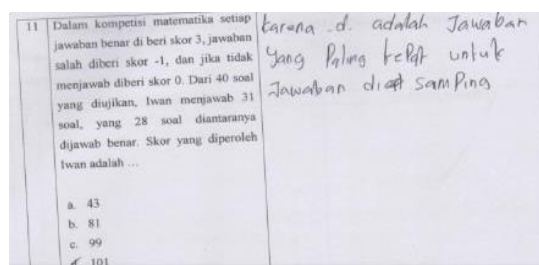 11
Dalam kompetisi matematika setiap
jawaban benar di beri skor 3, jawaban
salah diberi skor -1, dan jika tidak
menjawab diberi skor 0. Dari 40 soal
yang diujikan, Iwan menjawab 31
soal, yang 28 soal diantaranya
dijawab benar. Skor yang diperoleh
Iwan adalah ...
a. 43
b. 81
c. 99
101
karena d. adalah Jawaban
Yang Paling tepat untuk
Jawaban di samping